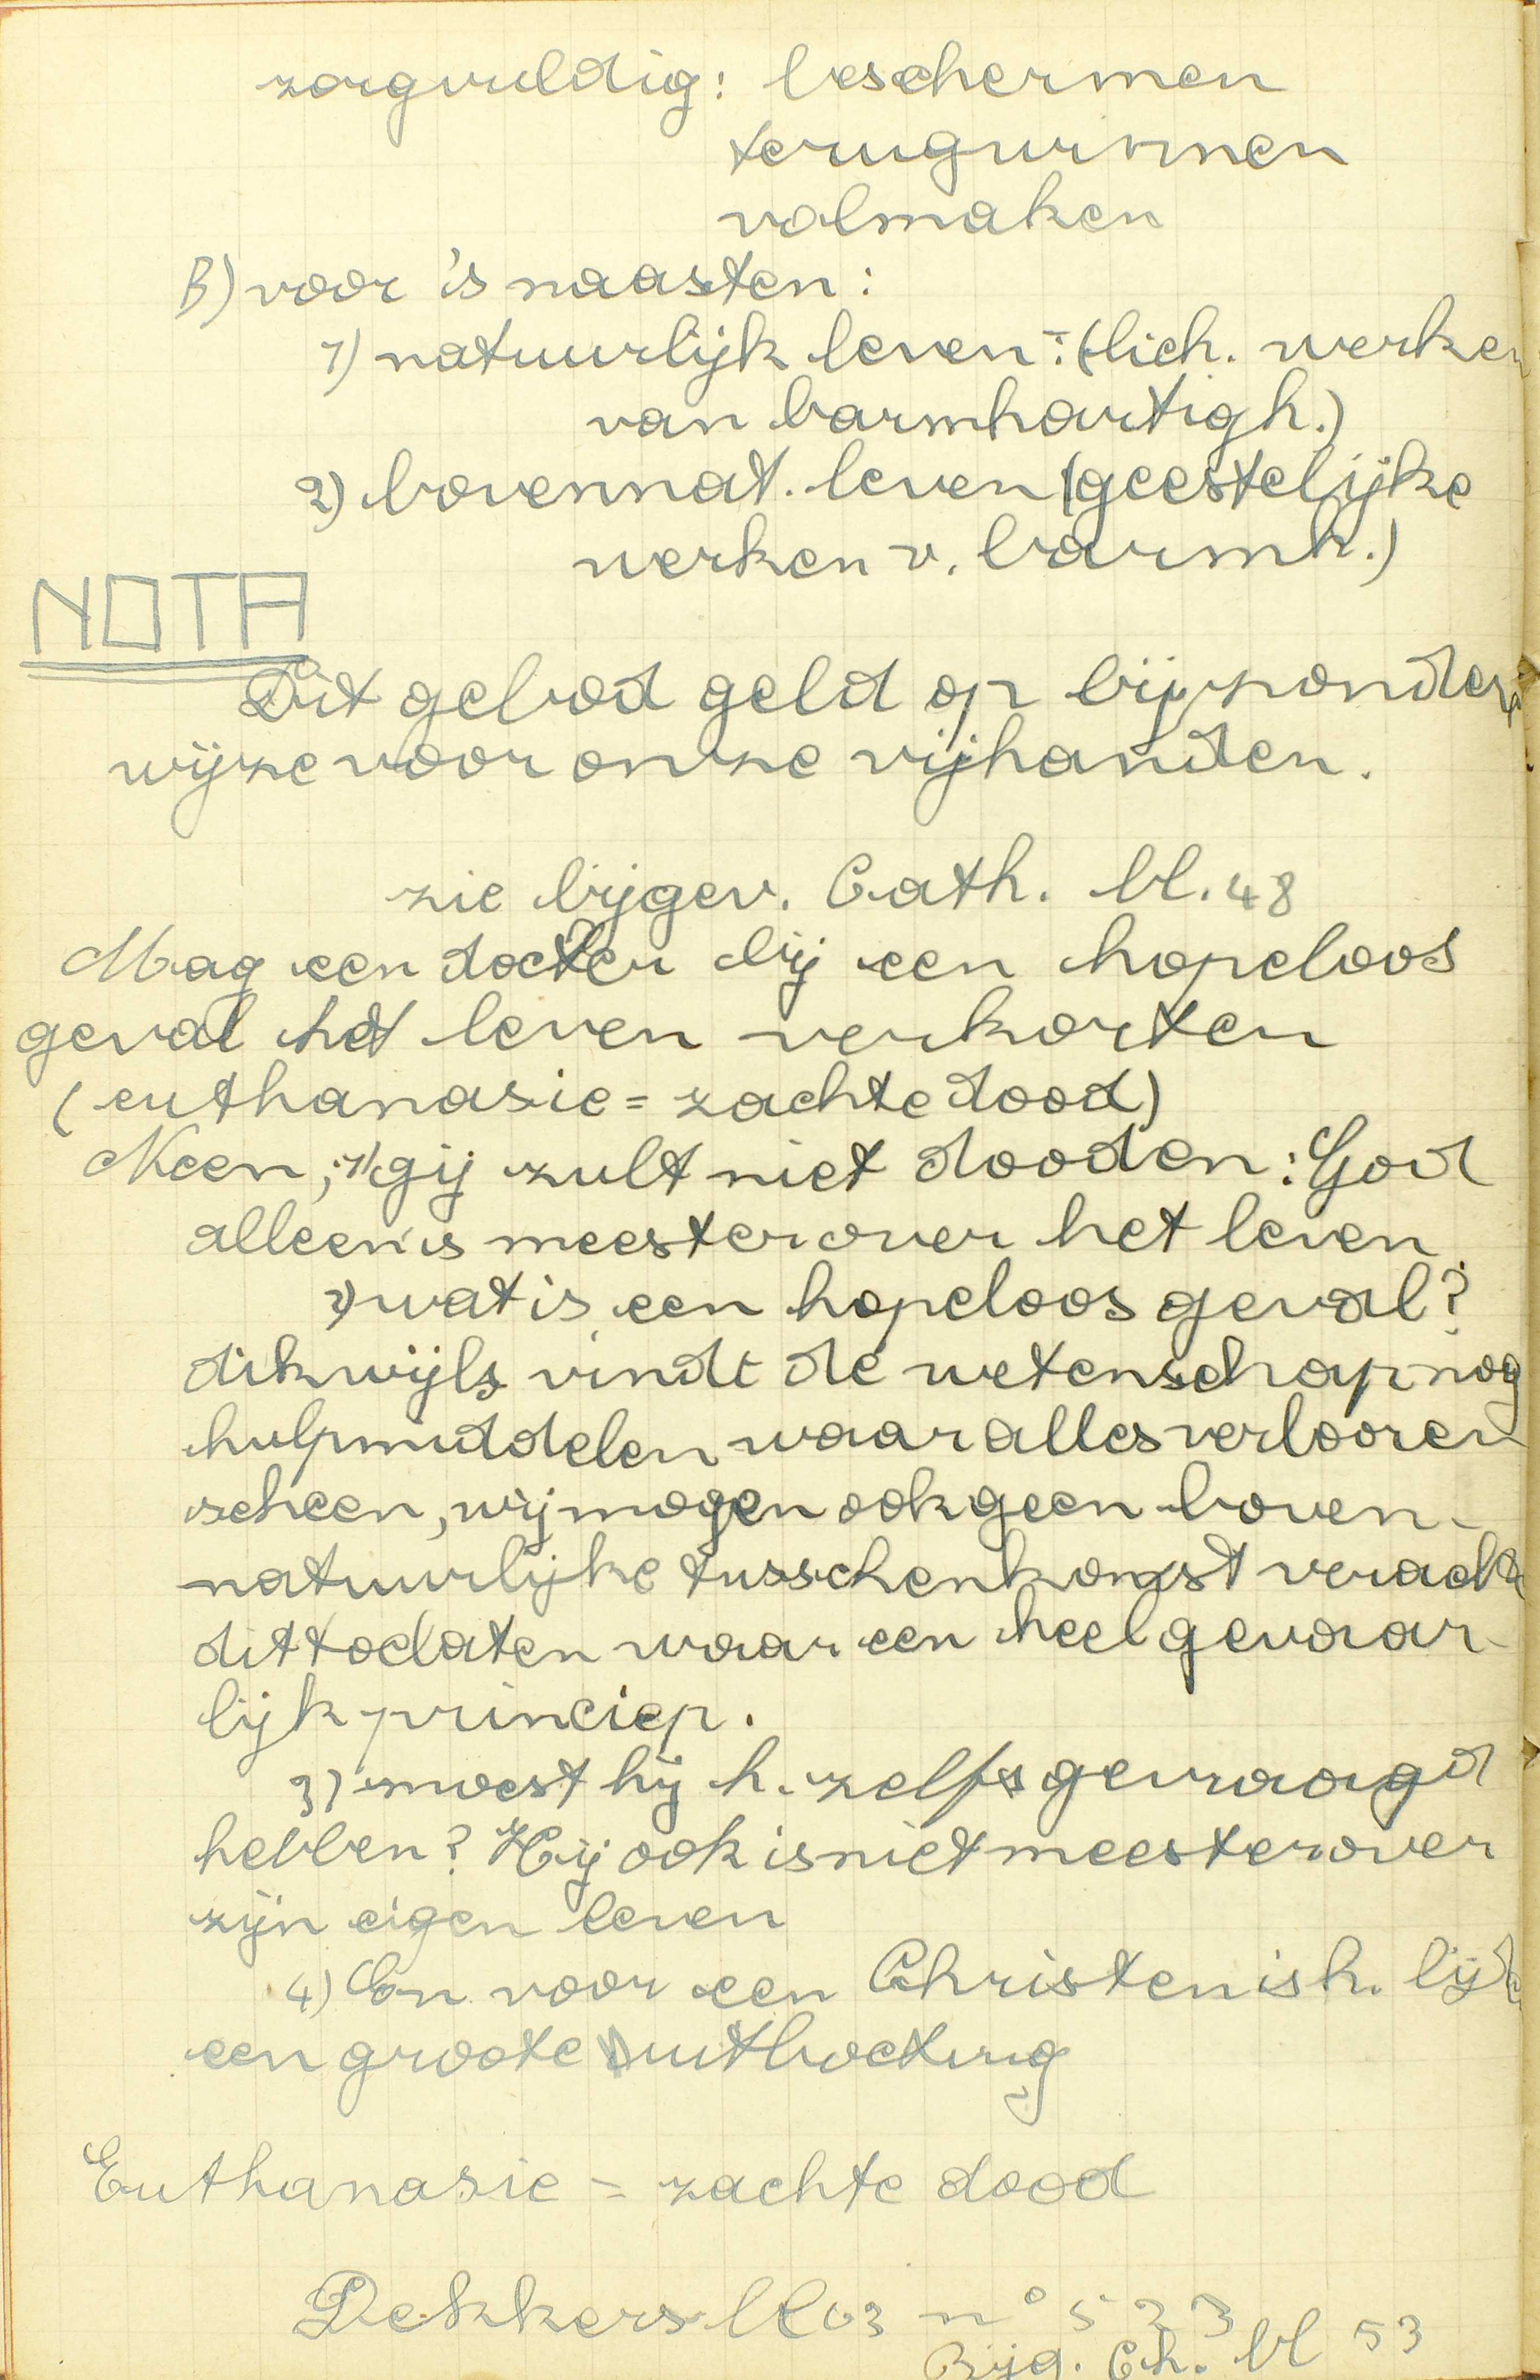 zorgvuldig: beschermen
terugwinnen
volmaken
B) voor 's naasten:
1) natuurlijk leven: (lich. werken
van barmhartigh.)
2) bovennat. leven (geestelijke
werken v. barmh.)
NOTA
Dit gebod geld op bijzonder
wijze voor onze vijhanden.
zie bijgev. Cath. bl. 48
Mag een docter bij een hopeloos
geval het leven verkorten
(euthanasie = zachte dood)
Neen, 1) gij zult niet dooden: God
alleen is meester over het leven
2) wat is een hopeloos geval?
dikwijls vindt de wetenschap nog
hulpmiddelen waar alles verlooren
scheen, wij mogen ook geen boven-
natuurlijke tusschenkomst
dit toelaten waar een heel gevaar-
lijk princiep.
3) moest hij h. zelfs gevraagd
hebben? Hij ook is niet meester over
zijn eigen leven
4) En voor een Christen is h.
een groote uitboeting
Euthanasie = zachte dood
Dekkers n° 533
Bijg. Ch. bl 53